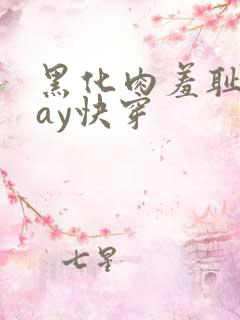 黑化肉羞耻
ay快穿
七星